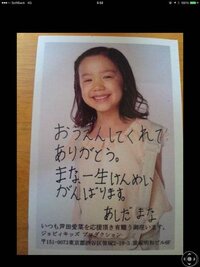 おうえんしてくれて
ありがとう。
まな一生けんめい
がんばります。
あしだまな
いつも芦田愛菜を応援頂き有難う御座います。
ジョビィキッズ プロダクション